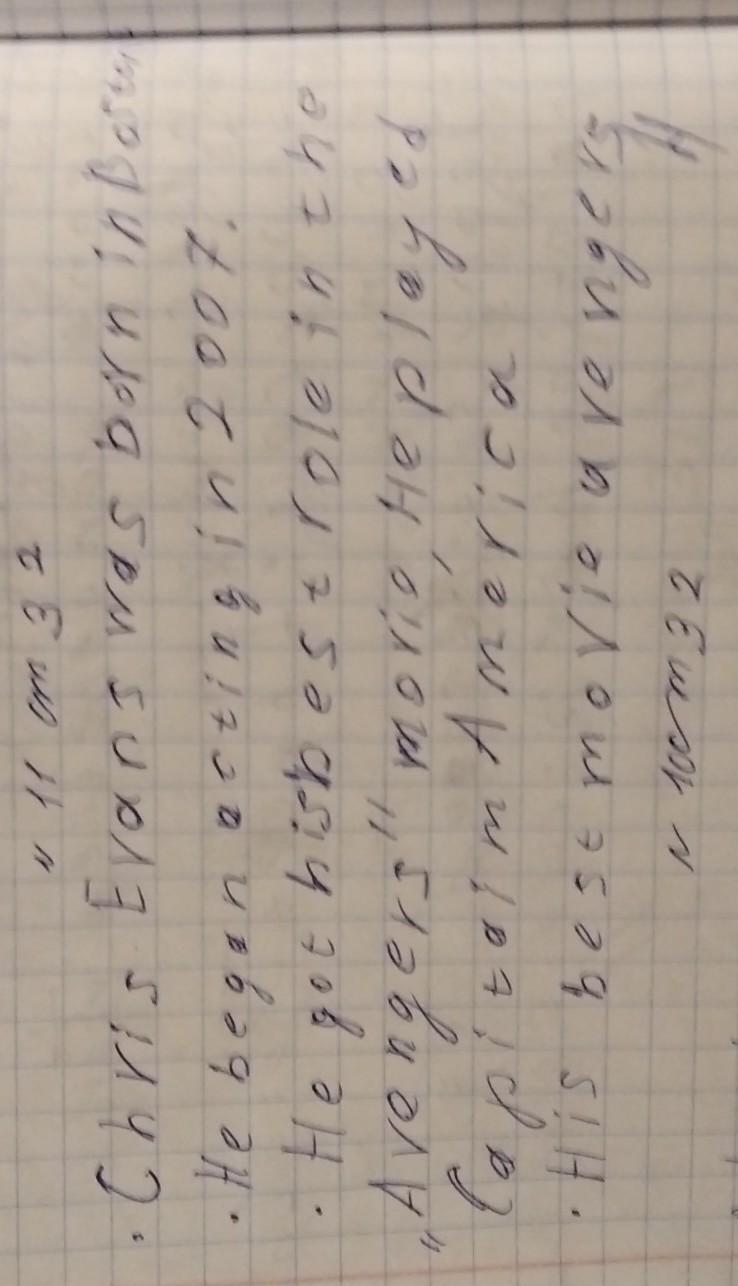 " 11 cm 32
· Chris Evans was born in Boston
· He began acting in 2007.
· He got his best role in the
„Avengers" movie, He played
Capitain America
· His best movie avengers
N 10 cm 32